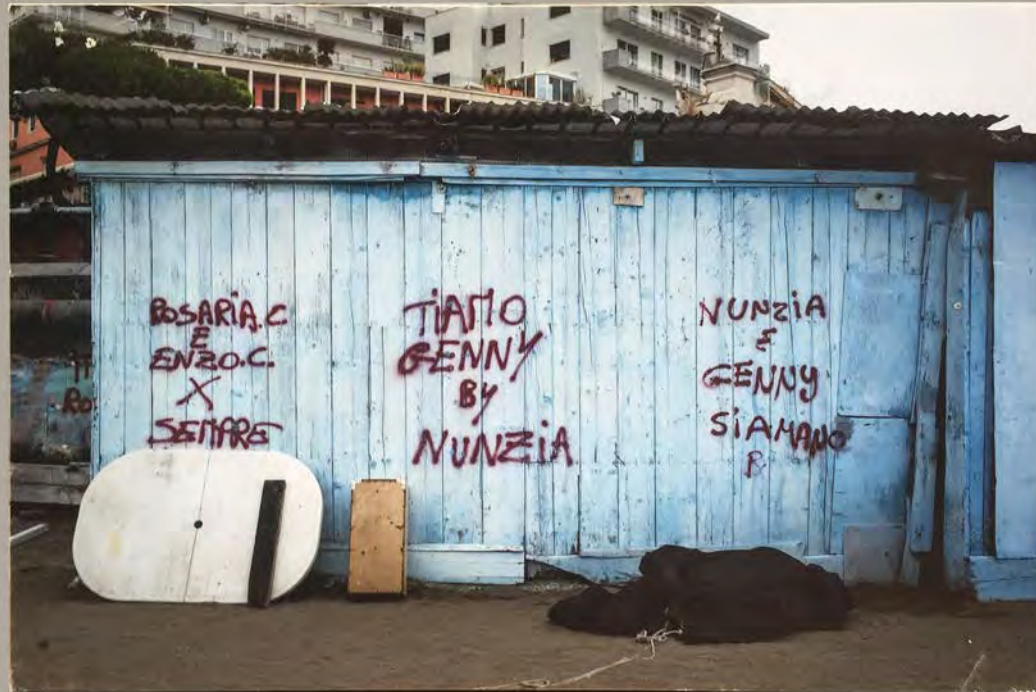 ROSARIA.C
E
ENZO.C.
X
SEMPRE
TiAMO
GENNY
By
NUNZiA
NUNZiA
E
GENNY
SiAMANO